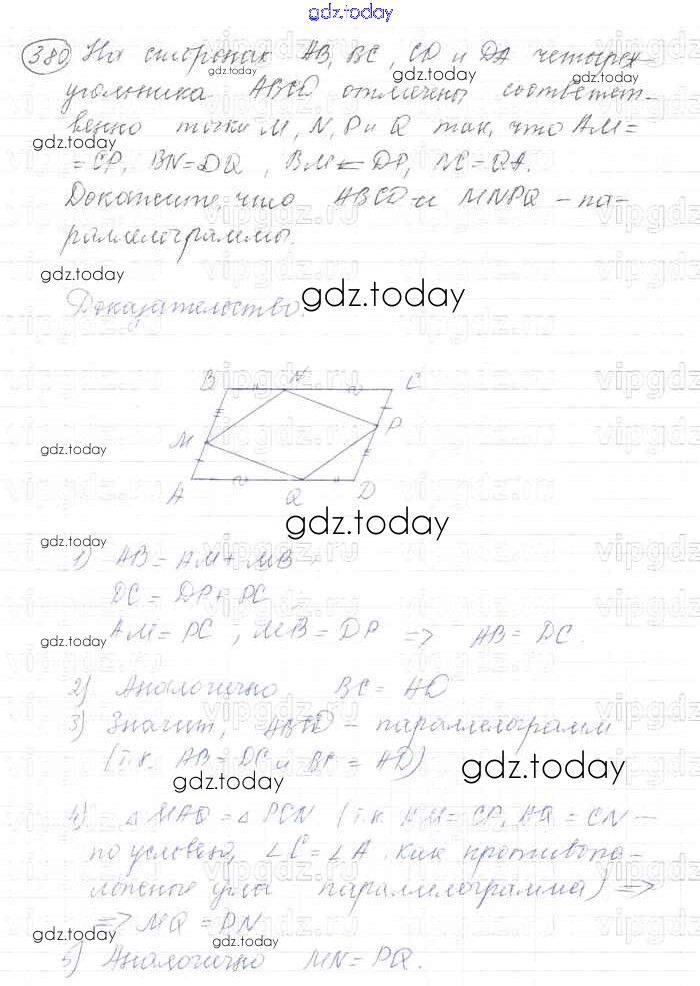 gdz.today
380 На сторонах AB, BC, CD и DA четырех-
gdz.today gdz.today
угольника ABCD отмечены соответст-
венно точки M, N, P и Q так, что AM=
gdz.today
= CP, BN=DQ, BM= DP, NC=QA.
Докажите, что ABCD и MNPQ – па-
раллелограммы.
gdz.today
Доказательство.
gdz.today
B N C
M P
gdz.today
A Q D
gdz.today
1) AB = AM + MB
DC = DP + PC
AM = PC ; MB = DP => AB = DC.
gdz.today
2) Аналогично BC = AD
3) Значит, ABCD – параллелограмм
(т.к. AB = DC и BC = AD)
gdz.today gdz.today
4) △ MAQ = △ PCN (т.к. AM = CP, AQ = CN –
по условию, ∠C = ∠A как противопо-
ложные углы параллелограмма) =>
=> MQ = PN
gdz.today gdz.today
5) Аналогично MN = PQ.
gdz.today